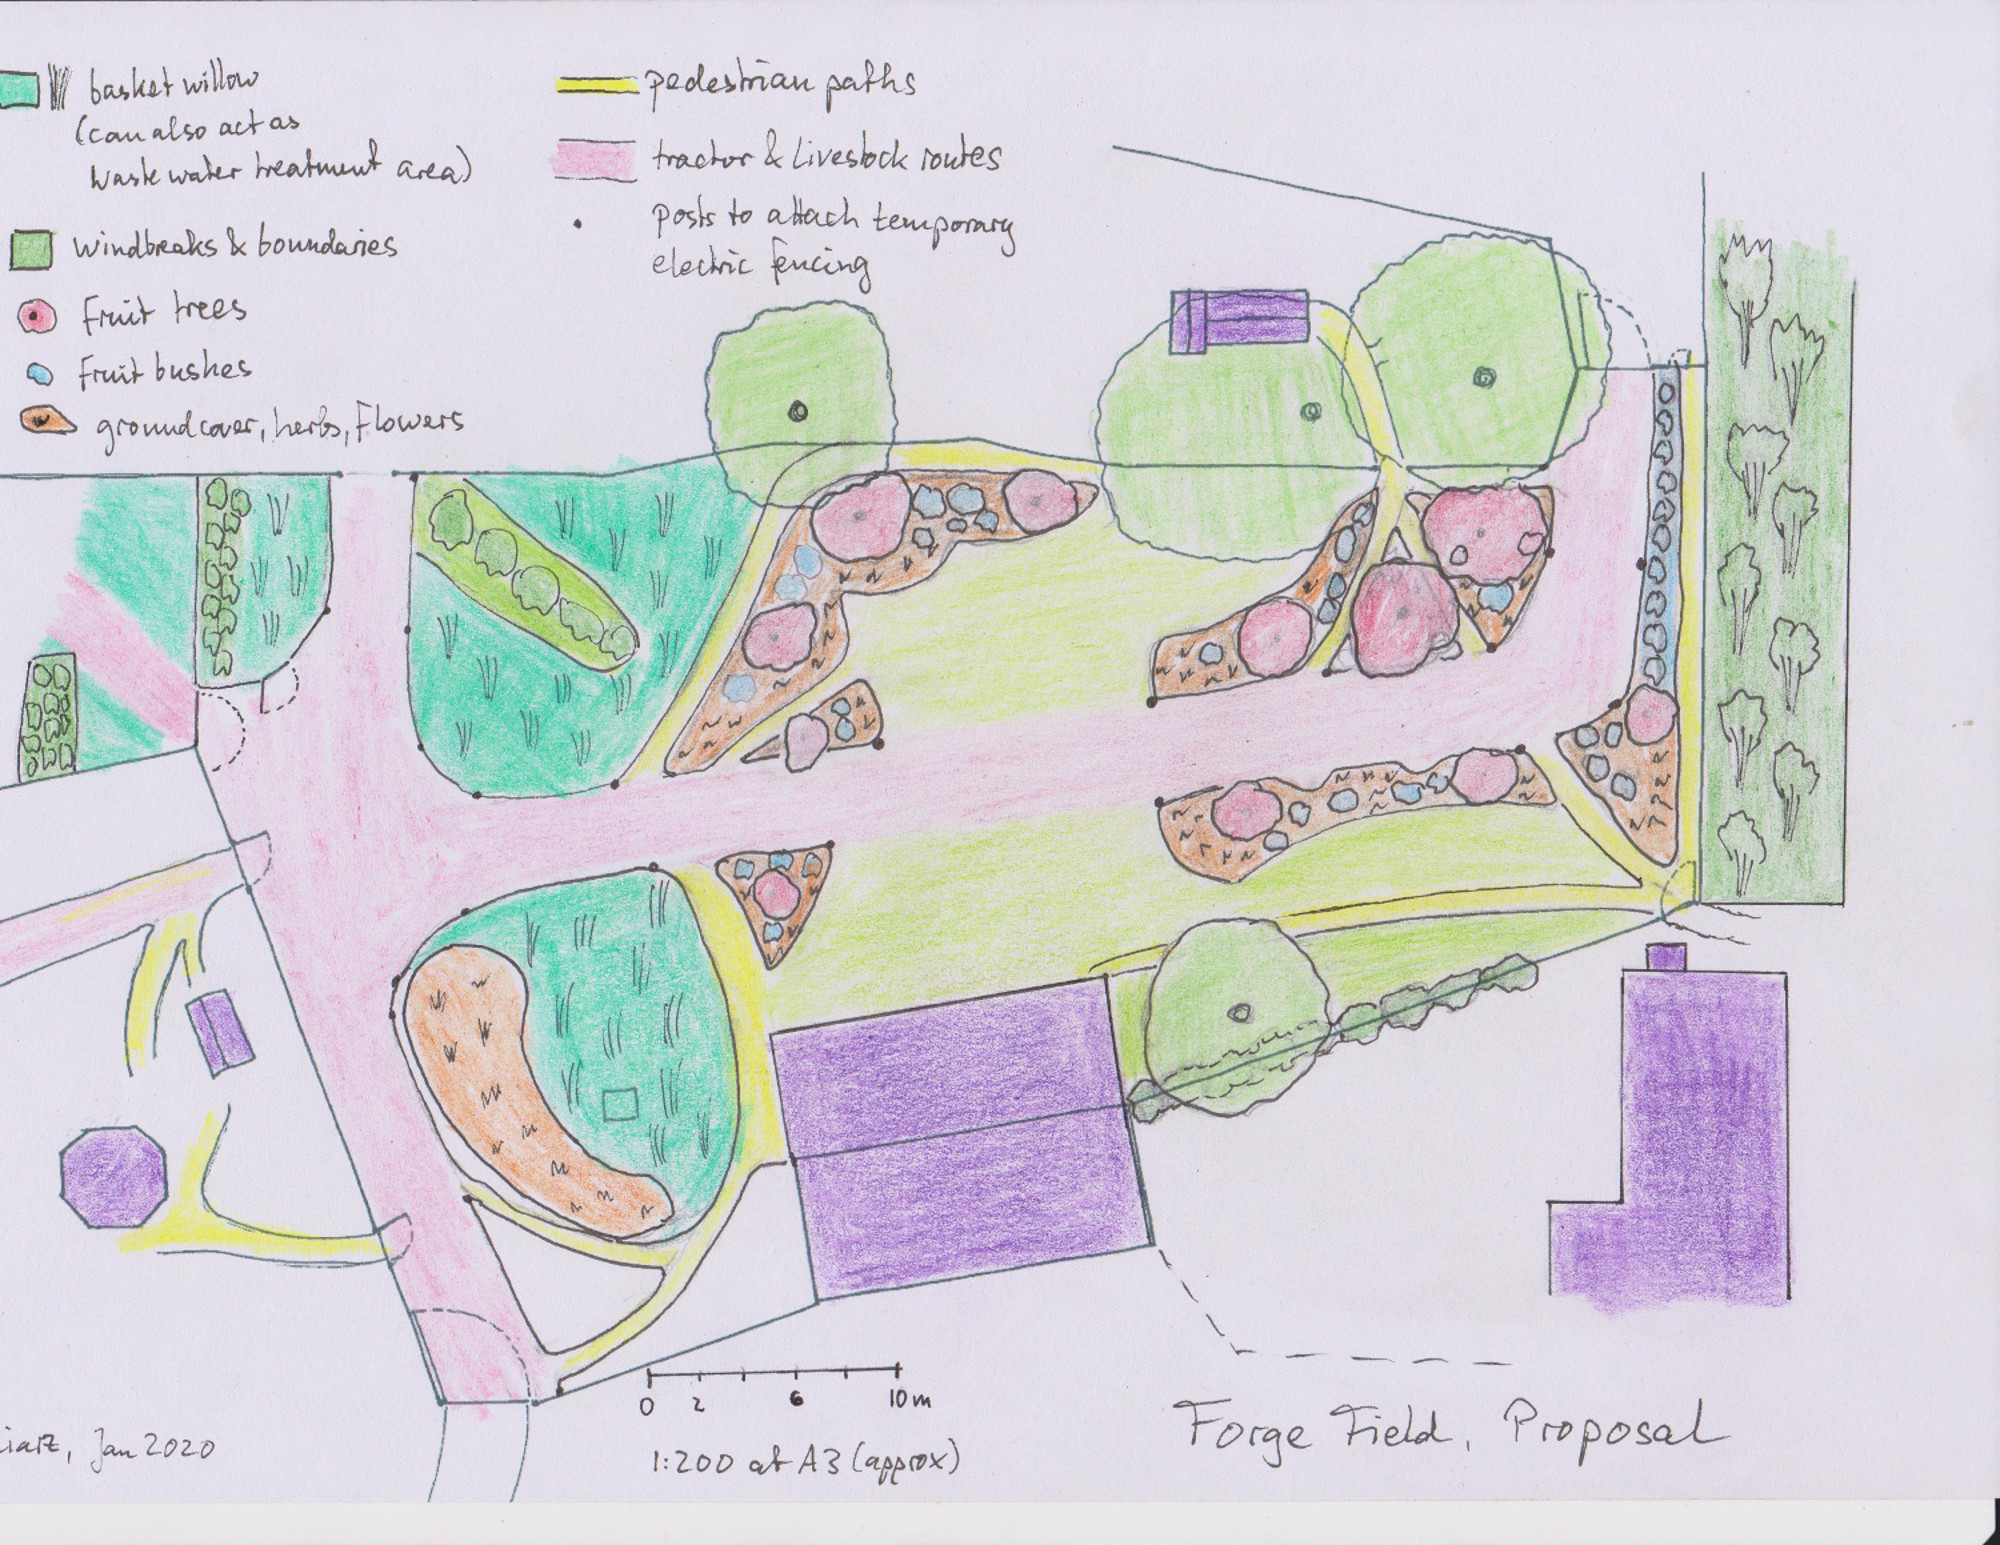 basket willow
(can also act as
waste water treatment area)
windbreaks & boundaries
fruit trees
fruit bushes
groundcover, herbs, flowers
pedestrian paths
tractor & livestock routes
posts to attach temporary
electric fencing
0 2 6 10m
1:200 at A3 (approx)
Jan 2020
Forge Field, Proposal